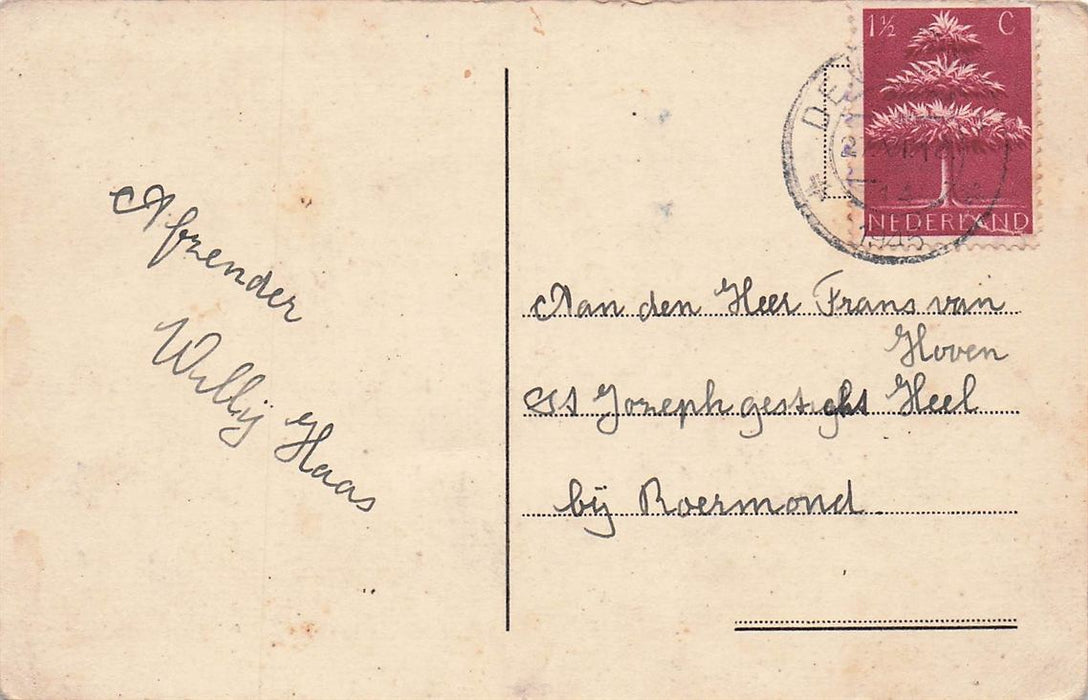 Afzender
Willij Haas
1½ C
NEDERLAND
1945
Aan den Heer Frans van
Hoven
St Jozeph gesticht Heel
bij Roermond.